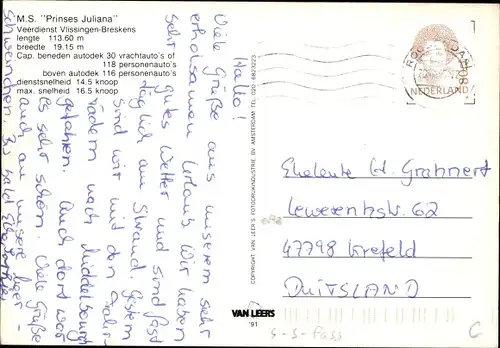 M.S. "Prinses Juliana"
Veerdienst Vlissingen-Breskens
lengte 113.60 m
breedte 19.15 m
Cap. beneden autodek 30 vrachtauto's of
118 personenauto's
boven autodek 116 personenauto's
dienstsnelheid 14.5 knoop
max. snelheid 16.5 knoop
Hallo!
Viele Grüße aus unserem sehr
erholsamen Urlaub. Wir haben
sehr gutes Wetter und sind fast
täglich am Strand. Gestern
sind wir mit den Fahr-
rädern nach Middelburg
gefahren. Auch dort war
es sehr schön. Viele Grüße
auch an unsere
schweinchen. Bis bald
COPYRIGHT VAN LEER'S FOTODRUKINDUSTRIE BV AMSTERDAM TEL. 020-6823223
NEDERLAND
Eheleute H. Grahnert
62
47798 Krefeld
DUITSLAND
VAN LEERS
'91
C